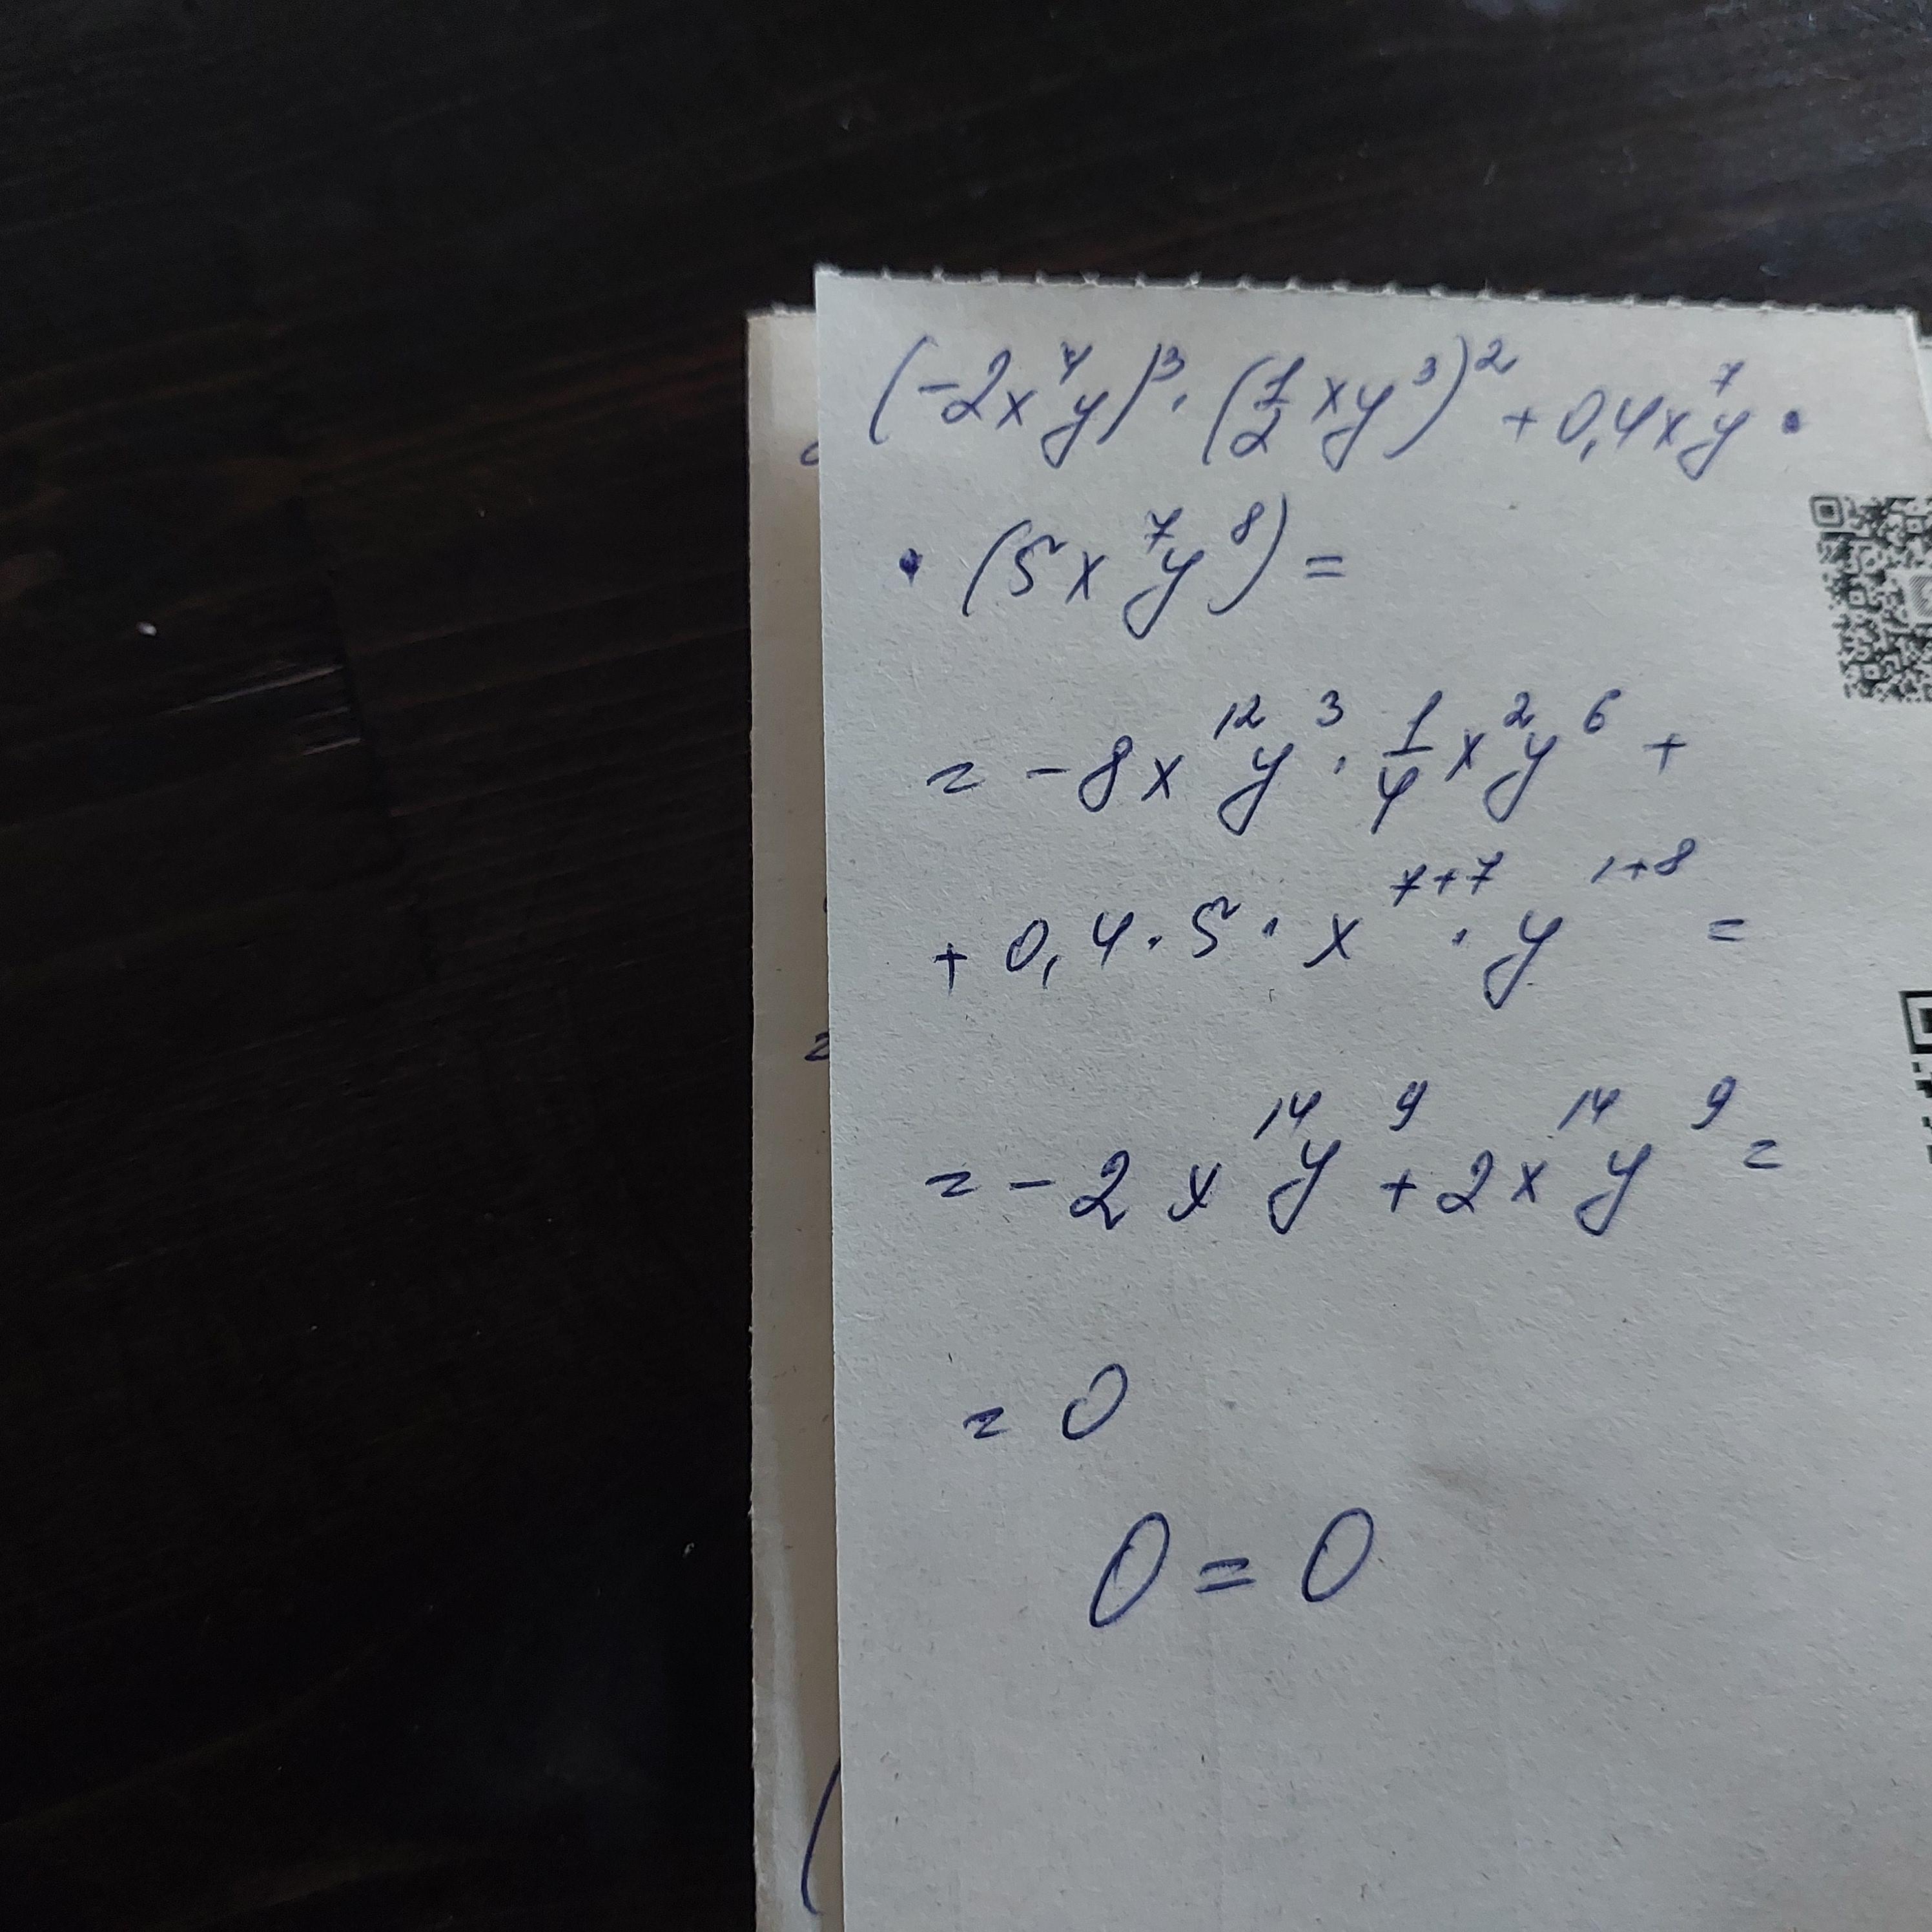 (-2x⁴y)³ · (1/2 xy³)² + 0,4x⁷y ·
· (5x⁷y⁸) =
= -8x¹²y³ · 1/4 x²y⁶ +
+ 0,4 · 5 · x⁷⁺⁷ · y¹⁺⁸ =
= -2x¹⁴y⁹ + 2x¹⁴y⁹ =
= 0
0 = 0